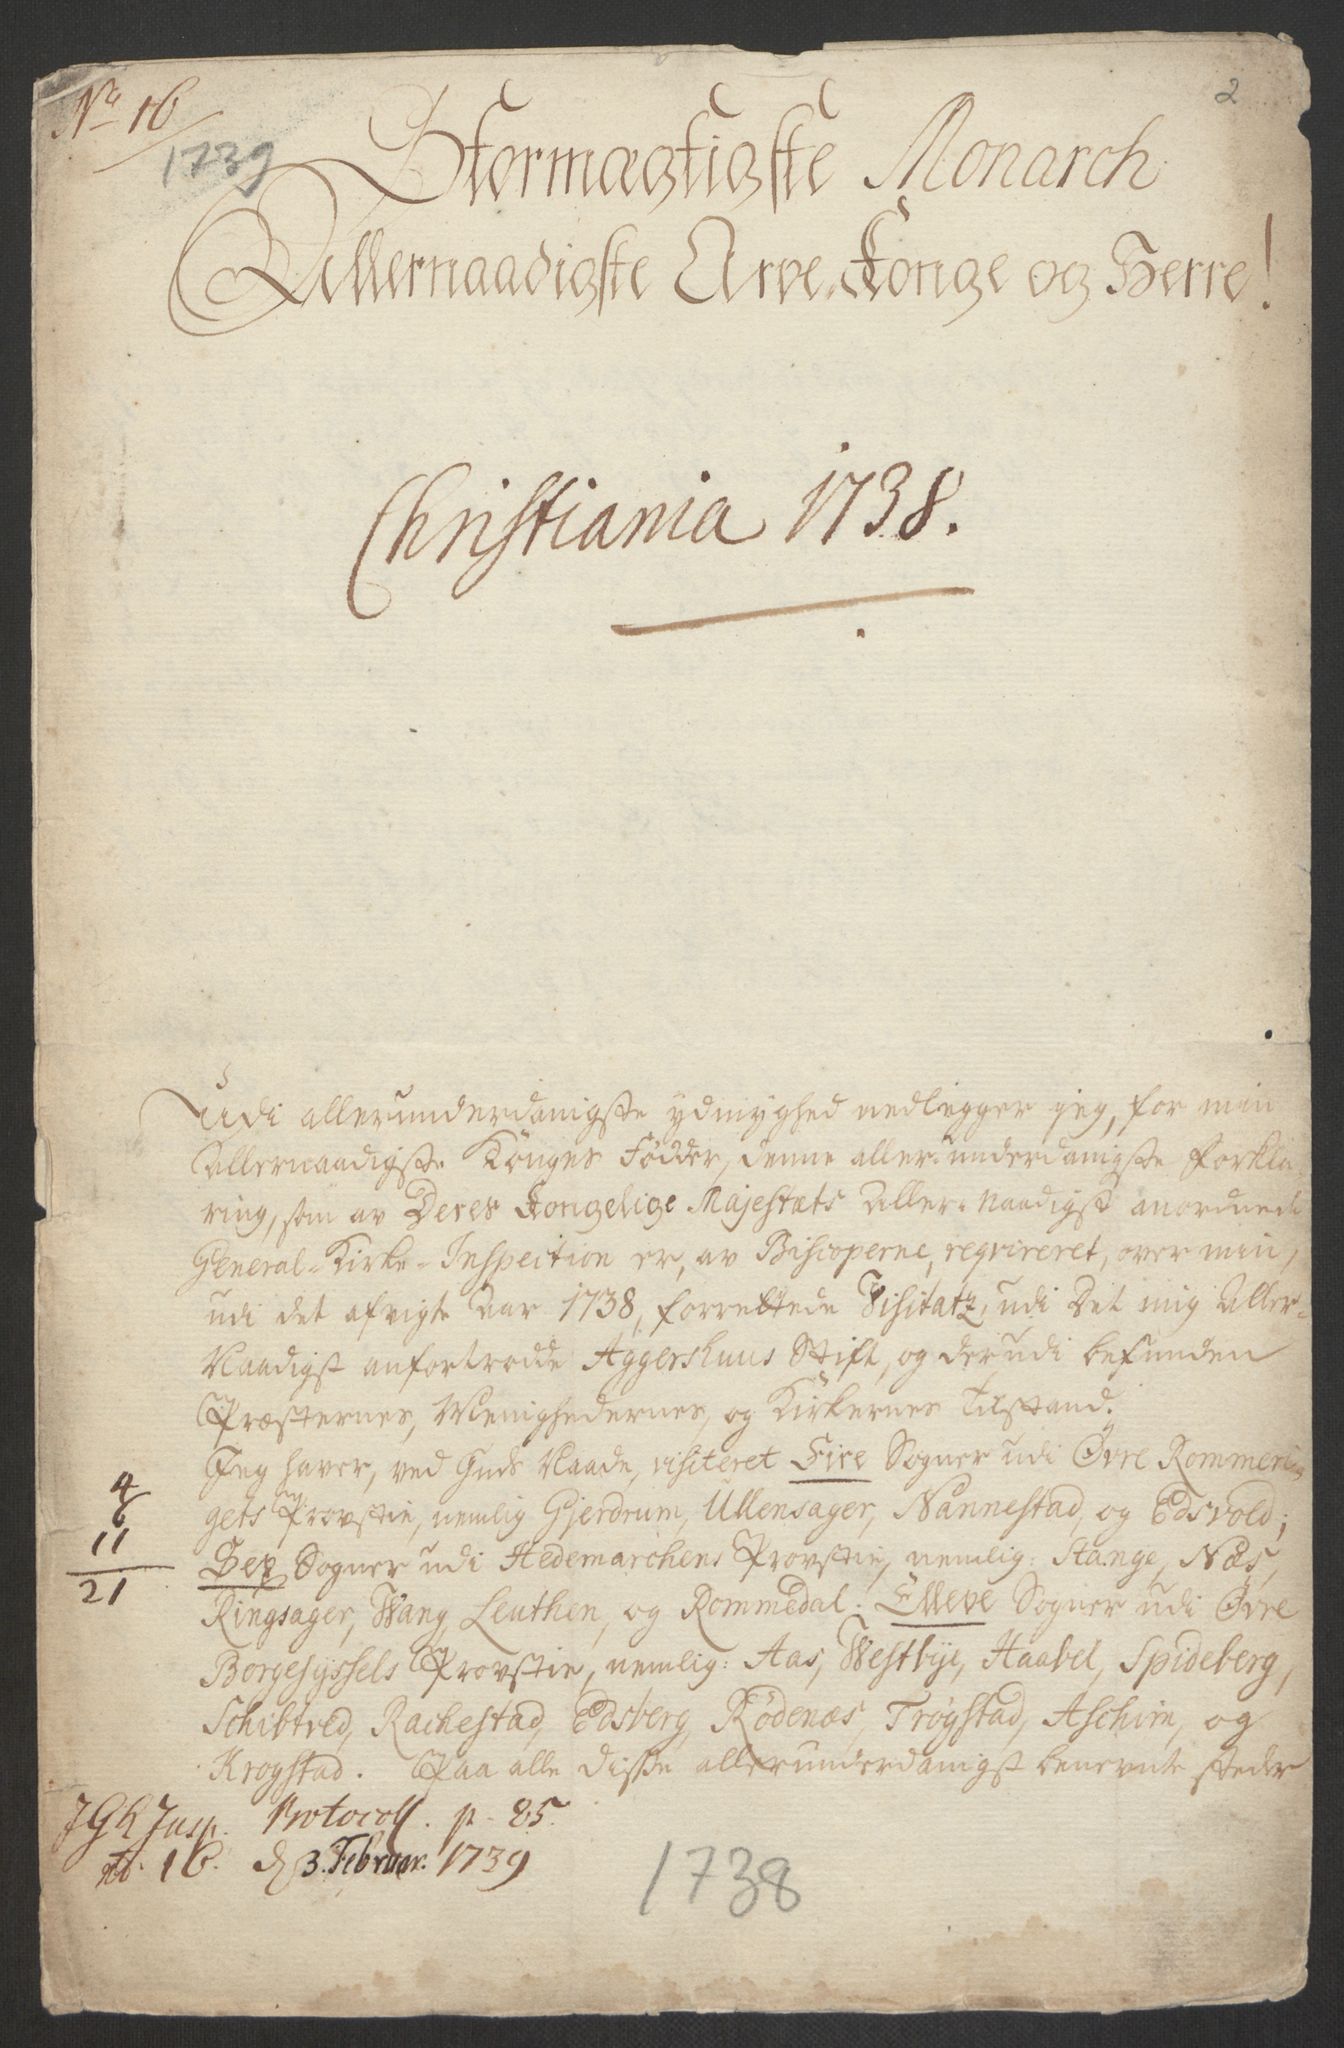 No 16
1739
2
Stormægtigste Monarch
Allernaadigste Arve-Konge og Herre!
Christiania 1738.
Udi allerunderdanigste ydmyghed nedlegger jeg, for min
Allernaadigste Konges Fødder, denne aller-underdanigste Forkla-
ring, som av Deres Kongelige Majestæts Aller-Naadigst anordnede
General-Kirke-Inspection er, av Biscoperne, reqvireret, over min,
udi det afvigte Aar 1738, forrettede Visitatz, udi Det mig Aller-
Naadigst anfortrodde Aggershuus Stift, og derudi befunden
Præsternes, Menighedernes, og Kirkernes Tilstand.
Jeg haver, ved Guds Naade, visiteret Fire Sogner udi Øvre Rommeri-
gets Provstie, nemlig Gjerdrum, Ullensager, Nannestad, og Edsvold;
Sex Sogner udi Hedemarchens Provstie, nemlig: Stange, Næs,
Ringsager, Wang, Leuthen, og Rommedal. Elleve Sogner udi Øvre
Borgesyssels Provstie, nemlig: Aas, Westbye, Haabel, Spideberg,
Schibtved, Rachestad, Edsberg, Rødenæs, Trøgstad, Aschim, og
Krogstad. Paa alle disse allerunderdanigst benevnte steder
4
6
11
21
J G K Insp. Protocoll. p. 85.
No. 16. d 3. Februar. 1739
1738